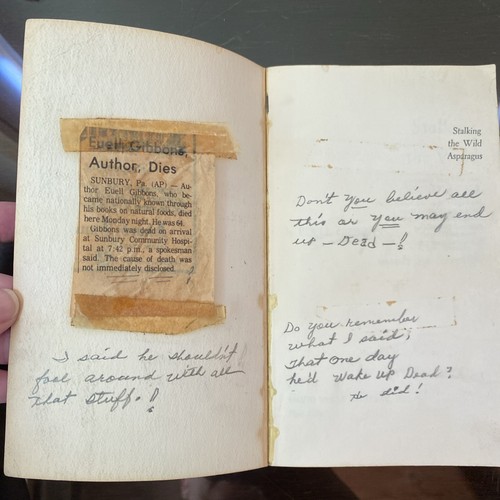 Euell Gibbons,
Author, Dies
SUNBURY, Pa. (AP) — Au-
thor Euell Gibbons, who be-
came nationally known through
his books on natural foods, died
here Monday night. He was 64.
Gibbons was dead on arrival
at Sunbury Community Hospi-
tal at 7:42 p.m., a spokesman
said. The cause of death was
not immediately disclosed.
I said he shouldn't
fool around with all
that stuff.!
Stalking
the Wild
Asparagus
Don't you believe all
this or you may end
up — Dead —!
Do you remember
what I said,
That one day
he'd Wake up Dead?
He did!